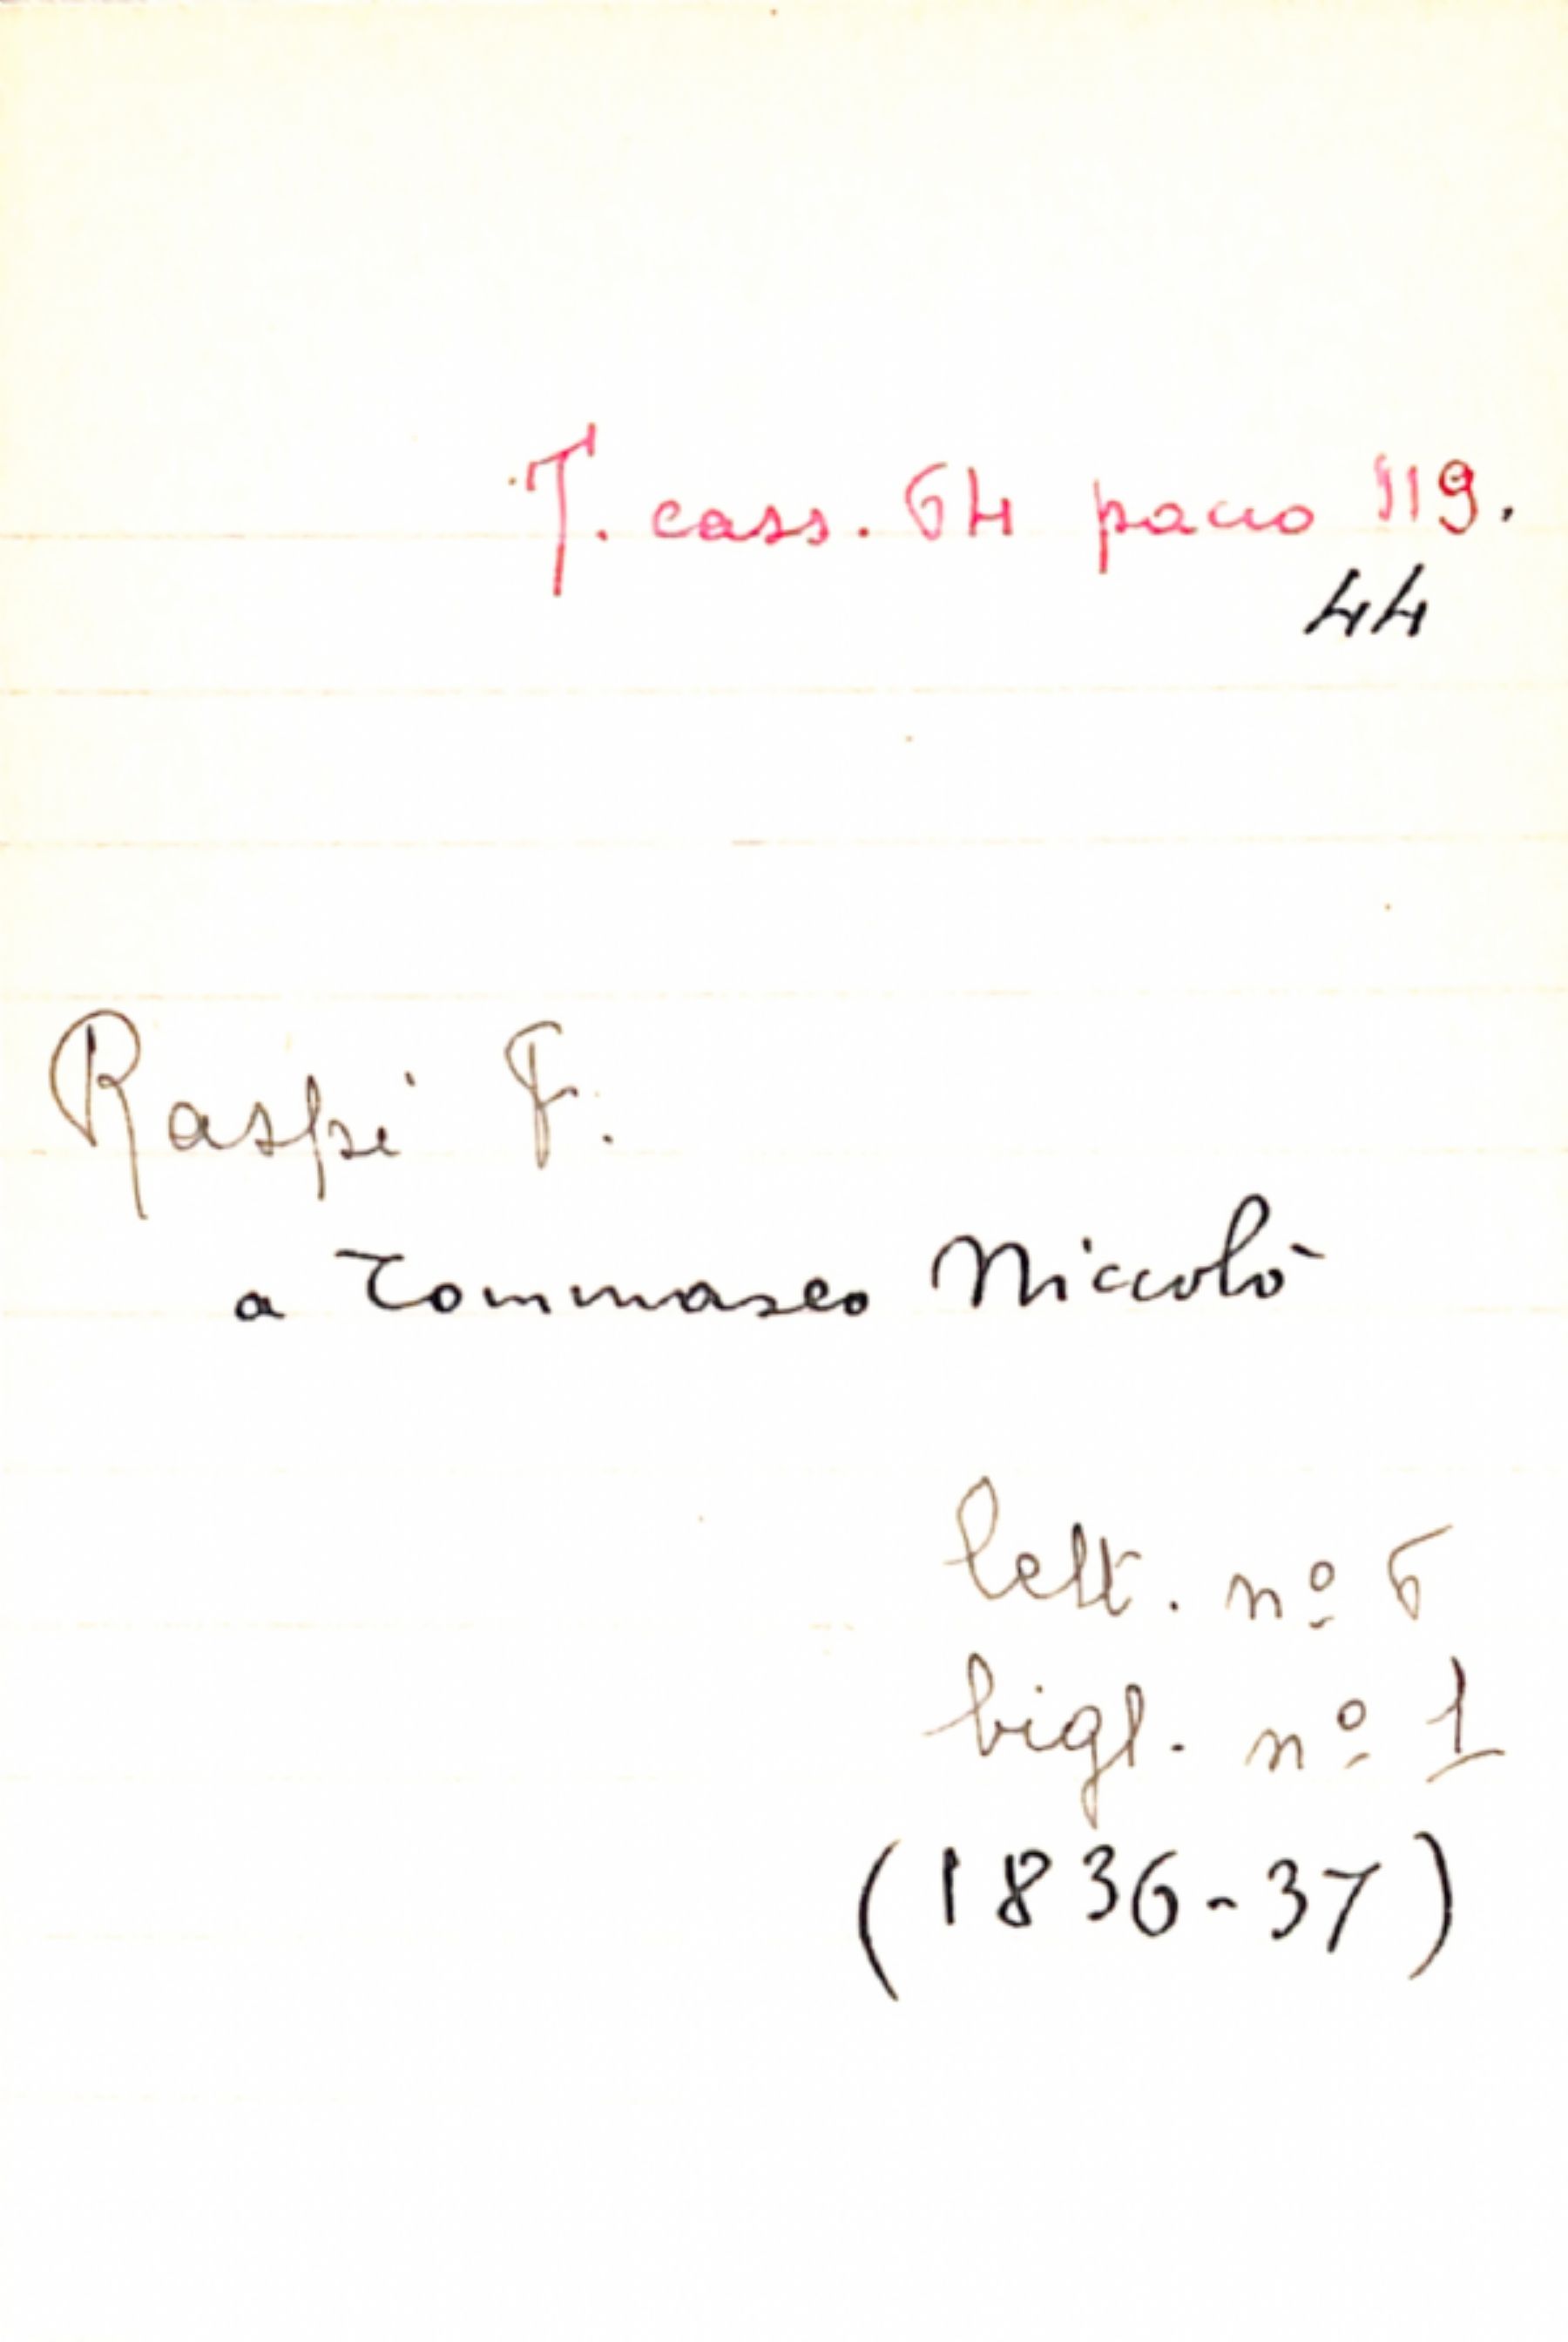 T. cass. 64 pacco 119.
44
Raspi F.
a Tommaseo Niccolò
lett. nº 6
bigl. nº 1
(1836-37)